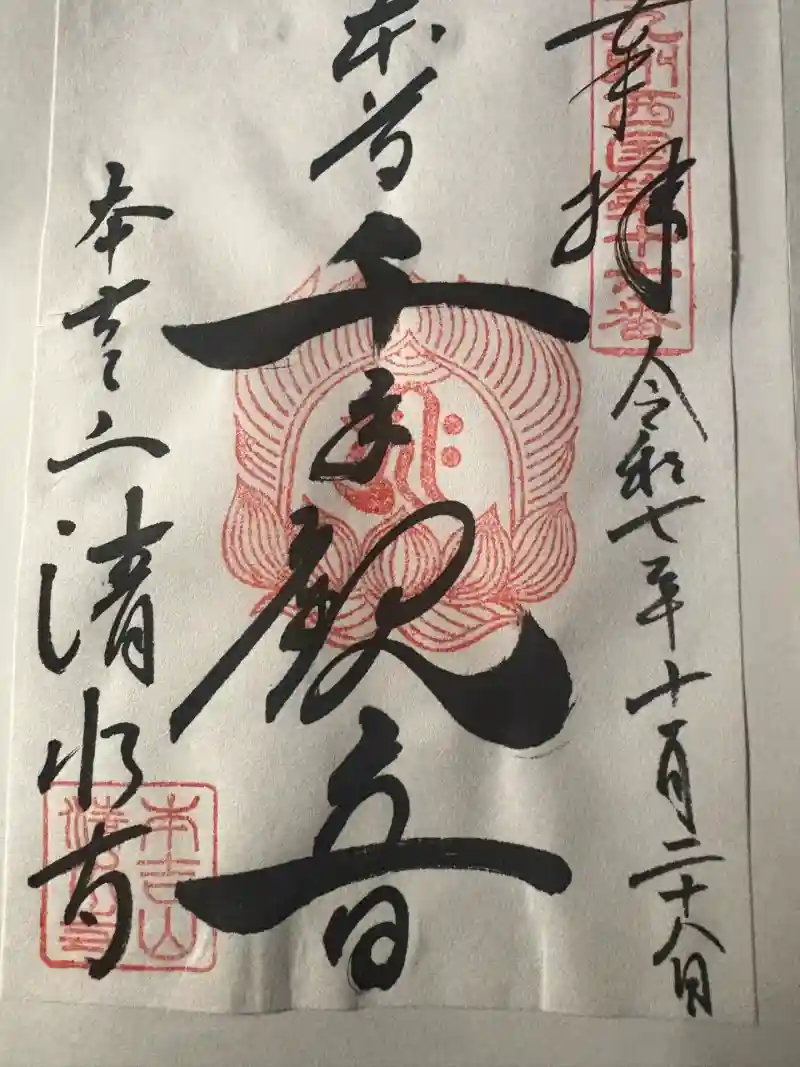 九州西国第十六番
奉拝 令和七年十月二十八日
本尊 千手観音
本吉山 清水寺
本吉山
清水寺